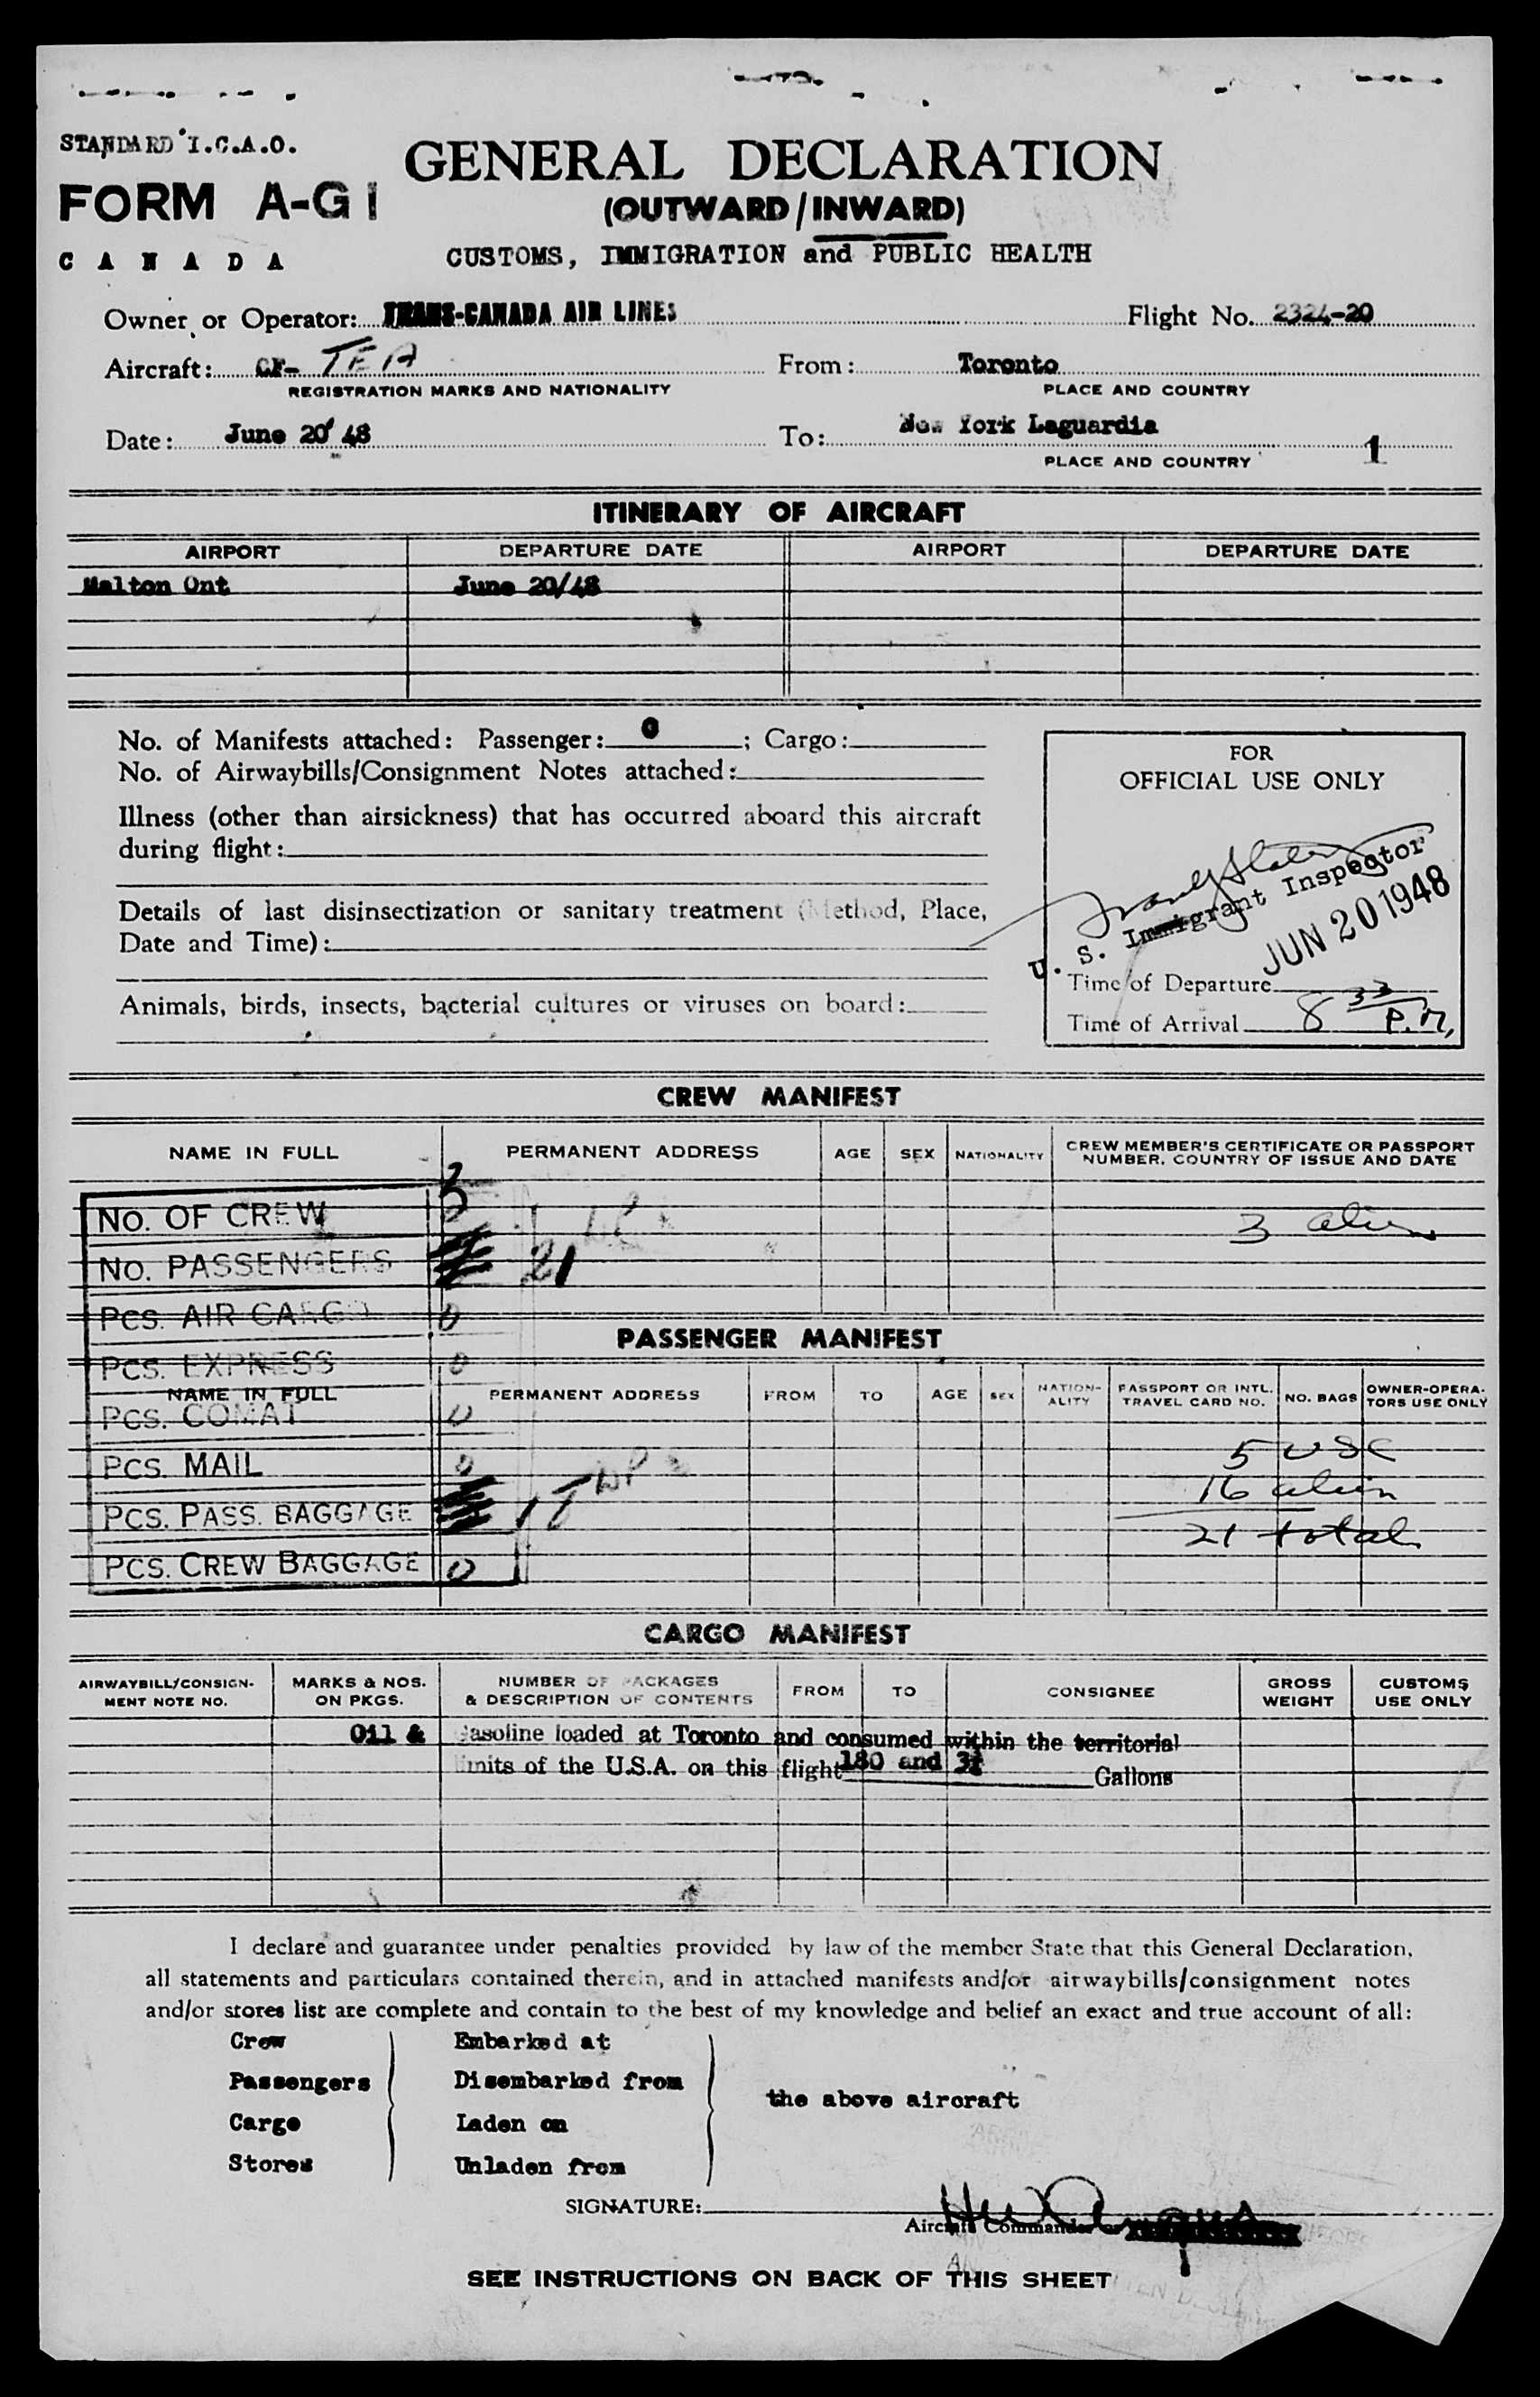 STANDARD I.C.A.O.
FORM A-G1
CANADA
GENERAL DECLARATION
(OUTWARD/INWARD)
CUSTOMS, IMMIGRATION and PUBLIC HEALTH
Owner or Operator: TRANS-CANADA AIR LINES Flight No. 2324-20
Aircraft: CF- TEA From: Toronto
REGISTRATION MARKS AND NATIONALITY PLACE AND COUNTRY
Date: June 20' 48 To: New York Laguardia 1
PLACE AND COUNTRY
ITINERARY OF AIRCRAFT
AIRPORT DEPARTURE DATE AIRPORT DEPARTURE DATE
Malton Ont June 20/48
No. of Manifests attached: Passenger: 0 ; Cargo:
No. of Airwaybills/Consignment Notes attached:
Illness (other than airsickness) that has occurred aboard this aircraft
during flight:
Details of last disinsectization or sanitary treatment (Method, Place,
Date and Time):
Animals, birds, insects, bacterial cultures or viruses on board:
FOR
OFFICIAL USE ONLY
U. S. Immigrant Inspector
JUN 20 1948
Time of Departure
Time of Arrival 8 33 P.M,
CREW MANIFEST
NAME IN FULL PERMANENT ADDRESS AGE SEX NATIONALITY CREW MEMBER'S CERTIFICATE OR PASSPORT
NUMBER, COUNTRY OF ISSUE AND DATE
No. OF CREW 3 3 alien
No. PASSENGERS 21
PCS. AIR CARGO 0
PASSENGER MANIFEST
PCS. EXPRESS 0
NAME IN FULL PERMANENT ADDRESS FROM TO AGE SEX NATION-
ALITY PASSPORT OR INTL.
TRAVEL CARD NO. NO. BAGS OWNER-OPERA-
TORS USE ONLY
PCS. COMAT 0
5 USC
PCS. MAIL 0
16 alien
PCS. PASS. BAGGAGE 17
21 total
PCS. CREW BAGGAGE 0
CARGO MANIFEST
AIRWAYBILL/CONSIGN-
MENT NOTE NO. MARKS & NOS.
ON PKGS. NUMBER OF PACKAGES
& DESCRIPTION OF CONTENTS FROM TO CONSIGNEE GROSS
WEIGHT CUSTOMS
USE ONLY
Oil & Gasoline loaded at Toronto and consumed within the territorial
limits of the U.S.A. on this flight 180 and Gallons
I declare and guarantee under penalties provided by law of the member State that this General Declaration,
all statements and particulars contained therein, and in attached manifests and/or airwaybills/consignment notes
and/or stores list are complete and contain to the best of my knowledge and belief an exact and true account of all:
Crew Embarked at
Passengers Disembarked from
the above aircraft
Cargo Laden on
Stores Unladen from
SIGNATURE:
Aircraft Commander or
SEE INSTRUCTIONS ON BACK OF THIS SHEET